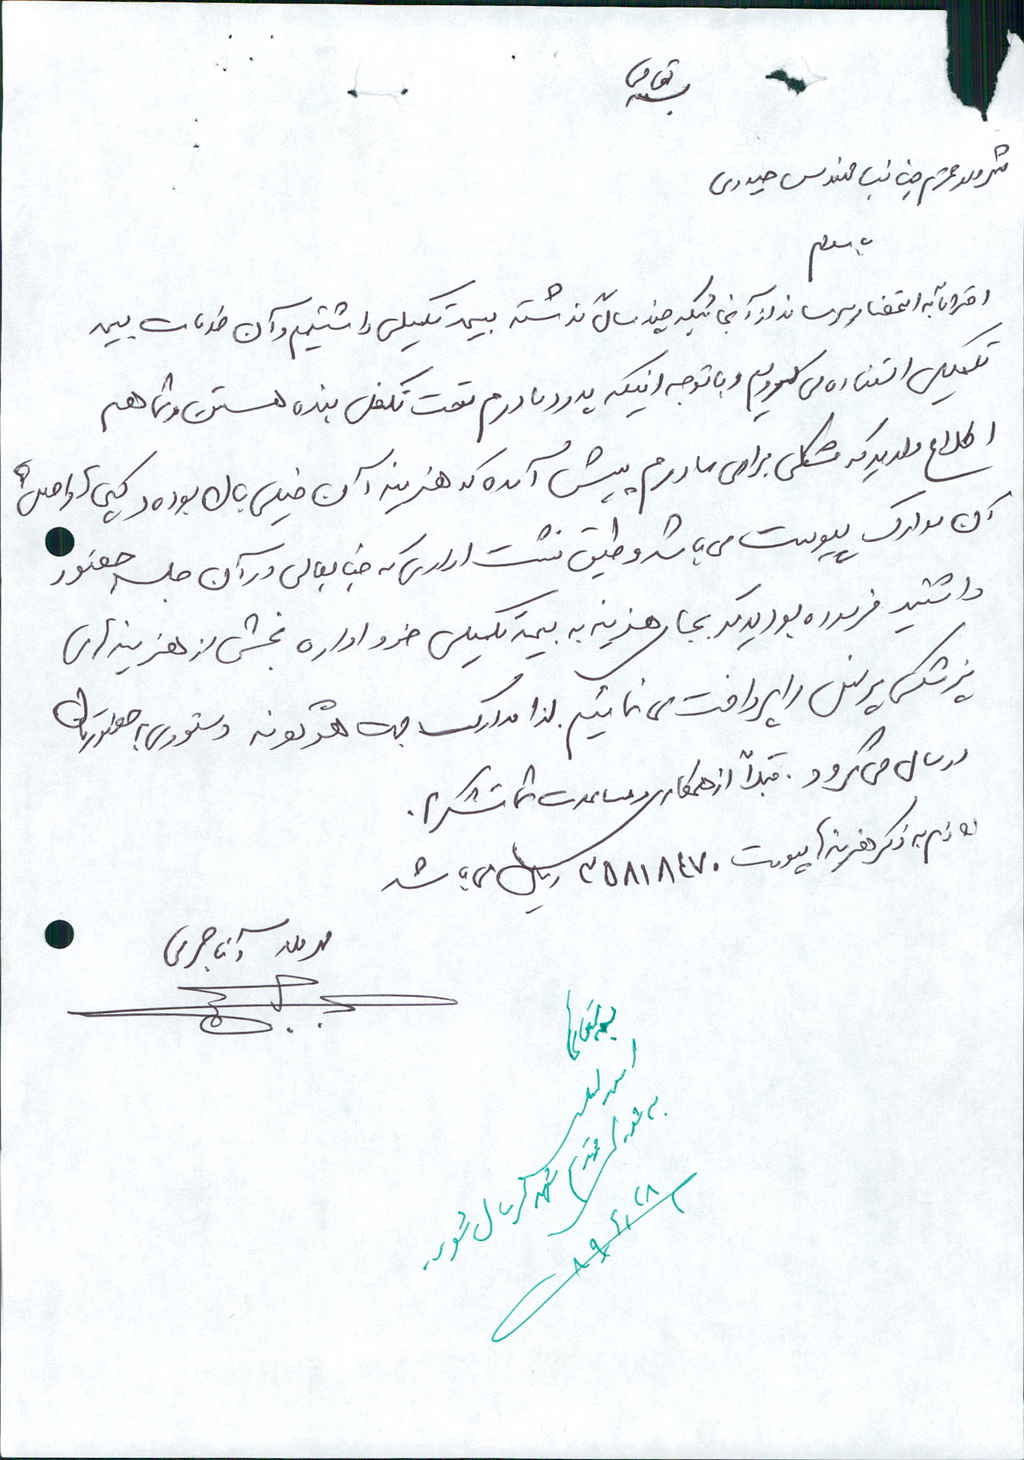 بسمه تعالی
شهردار محترم جناب مهندس حیدری
با سلام
احتراماً به استحضار می‌رساند از آنجائیکه چند سال گذشته بیمه تکمیلی داشتیم و از آن خدمات بیمه
تکمیلی استفاده می کردیم و با توجه اینکه پدر و مادرم تحت تکفل بنده هستن و شما هم
اطلاع دارید که مشکلی برای مادرم پیش آمده که هزینه آن خیلی بالا بوده و کپی و اصل
آن مدارک پیوست می باشد و طبق نشست اداری که جنابعالی در آن جلسه حضور
داشتید فرموده بودید که بجای هزینه به بیمه تکمیلی خود اداره بخشی از هزینه های
پزشکی پرسنل را پرداخت می نمائیم. لذا مدارک جهت هر گونه دستوری به حضورتان
ارسال می گردد. قبلاً از همکاری و مساعدت شما متشکرم.
لازم به ذکر هزینه پیوست ۳۵۸۱۸۴۷۰ ریال می باشد
بسمه تعالی
به شهردار محترم
ارسال شود.
۸۹/۴/۲۸